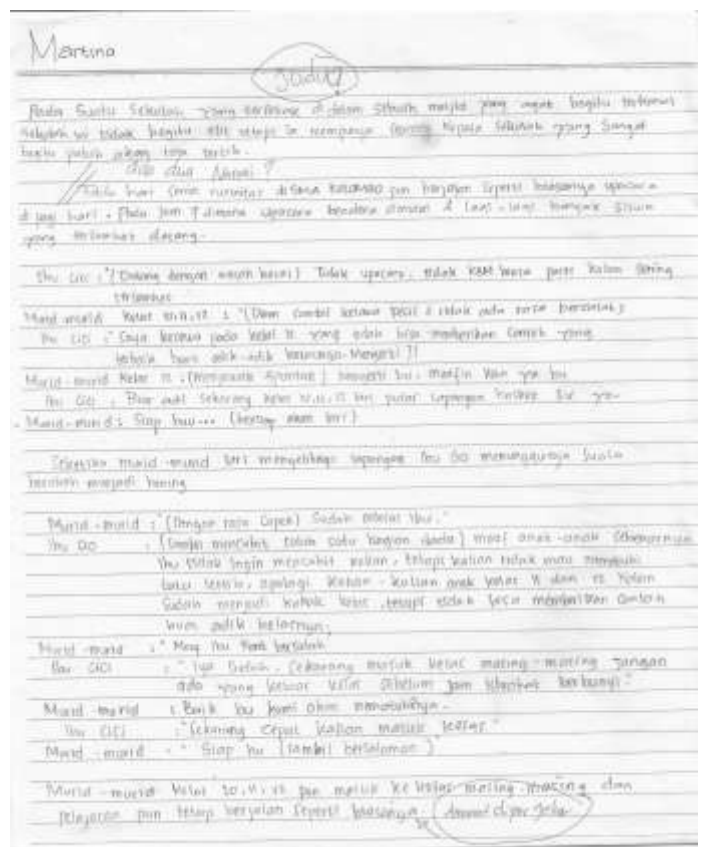 Martina
Judul?
Pada Suatu Sekolah yang di dalam sebuah yang agak begitu terkenal
sekolah ini tidak begitu elit tetapi ia mempunyai seorang Kepala Sekolah yang Sangat
begitu patuh akan tata tertib.
dua Narasi ?
hari Senin disana pun berjalan seperti biasanya upacara
di pagi hari. Pada jam 7 dimana upacara bendera dimulai banyak siswa
yang terlambat datang.
Ibu Cici : "(Datang dengan wajah kesal) Tidak upacara, tidak KBM biasa pasti kalian sering
terlambat
Murid-murid kelas 10,11,12 : "(Diam sambil ketawa kecil tidak ada rasa bersalah)
Ibu Cici : "Saya kecewa pada kelas 12 yang tidak bisa memberikan Contoh yang
buat adik-adik kelasnya. Mengerti ?!
Murid-murid Kelas 12 : (Menjawab Spontan) mengerti bu, maafin kan ya bu
Ibu Cici : sekarang kelas 10,11,12 lari putar lapangan
- Murid-murid : Siap buu... (bersiap akan lari)
Ketika murid-murid lari mengelilingi lapangan Ibu Cici suatu
menjadi hening
Murid-murid : "(Dengan rasa Capek) Sudah selesai ibu."
Ibu Cici : (Sambil mencabut salah satu bagian ) maaf anak-anak sebenarnya
Ibu tidak ingin mencabut kalian, tetapi kalian tidak mau mematuhi
tata tertib, apalagi kalian - kalian anak kelas 11 dan 12 kalian
Sudah menjadi kakak kelas, tetapi tidak bisa memberikan contoh
buat adik kelasnya.
Murid-murid : " Maaf ibu kami bersalah
Ibu Cici : " Iya Sudah, Sekarang masuk kelas masing-masing jangan
ada yang keluar kelas sebelum jam istirahat berbunyi."
Murid-murid : Baik bu kami akan mematuhinya.
Ibu Cici : "Sekarang cepat kalian masuk kelas."
Murid-murid - " Siap bu (sambil bersalaman)
Murid-murid kelas 10,11,12 pun masuk ke kelas masing-masing dan
pelajaran pun tetap berjalan seperti biasanya